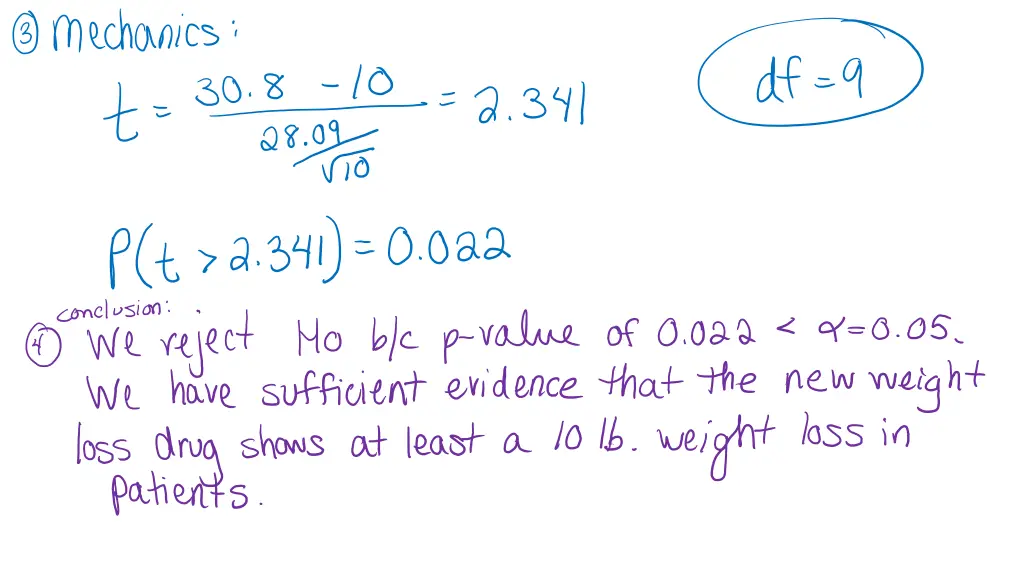 ③ Mechanics:
t = (30.8 - 10) / (28.09/√10) = 2.341
df = 9
P(t > 2.341) = 0.022
conclusion:
④ We reject Ho b/c p-value of 0.022 < α = 0.05.
We have sufficient evidence that the new weight
loss drug shows at least a 10 lb. weight loss in
patients.